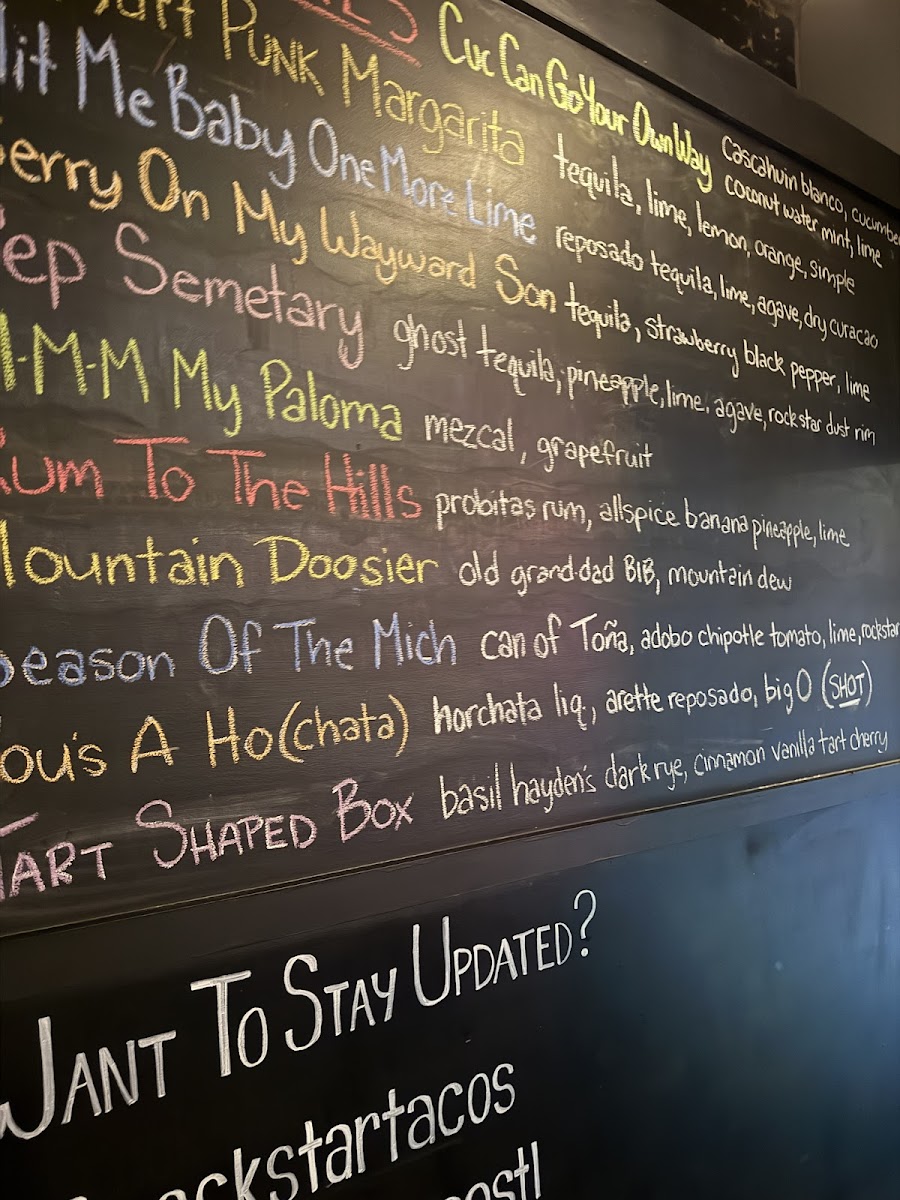 Cuc Can Go Your Own Way cascahuin blanco, cucumber
coconut water, mint, lime
Punk Margarita tequila, lime, lemon, orange, simple
Hit Me Baby One More Lime reposado tequila, lime, agave, dry curacao
Berry On My Wayward Son tequila, strawberry black pepper, lime
Pep Semetary ghost tequila, pineapple, lime, agave, rockstar dust rim
M-M-M My Paloma mezcal, grapefruit
Rum To The Hills probitas rum, allspice banana pineapple, lime
Mountain Doosier old grand-dad BIB, mountain dew
Season Of The Mich can of Toña, adobo chipotle tomato, lime, rockstar
ou's A Ho(chata) horchata liq., arette reposado, big O (SHOT)
Tart Shaped Box basil hayden's dark rye, cinnamon vanilla tart cherry
Want To Stay Updated?
ckstartacos
ostl